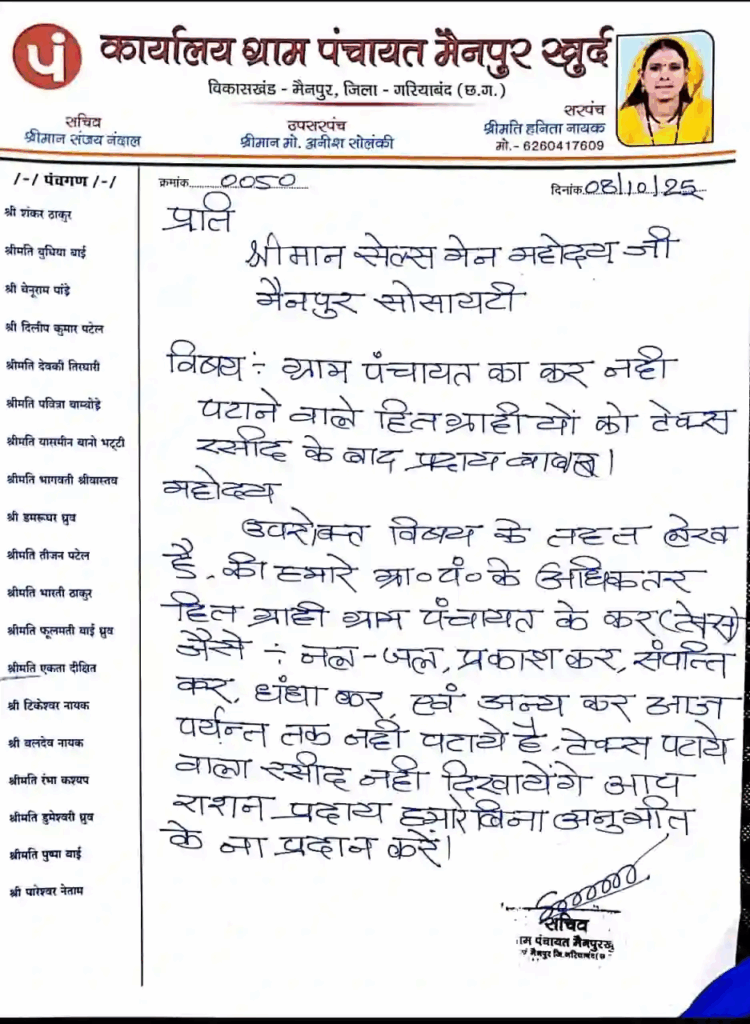 पं
कार्यालय ग्राम पंचायत मैनपुर खुर्द
विकासखंड - मैनपुर, जिला - गरियाबंद (छ.ग.)
सचिव
श्रीमान संजय नंदाल
उपसरपंच
श्रीमान मो. अनीश सोलंकी
सरपंच
श्रीमति हनिता नायक
मो.- 6260417609
/-/ पंचगण /-/
श्री शंकर ठाकुर
श्रीमति बुधिया बाई
श्री बेनूराम पांड़े
श्री दिलीप कुमार पटेल
श्रीमति देवकी तिरधारी
श्रीमति पवित्रा बाम्बोड़े
श्रीमति यासमीन बानो भट्टी
श्रीमति भागवती श्रीवास्तव
श्री डमरूधर ध्रुव
श्रीमति तीजन पटेल
श्रीमति भारती ठाकुर
श्रीमति फूलमती बाई ध्रुव
श्रीमति एकता दीक्षित
श्री टिकेश्वर नायक
श्री बलदेव नायक
श्रीमति रंभा कश्यप
श्रीमति डुमेश्वरी ध्रुव
श्रीमति पुष्पा बाई
श्री पारेश्वर नेताम
क्रमांक 0050
दिनांक. 08/10/25
प्रति
श्रीमान सेल्स मेन महोदय जी
मैनपुर सोसायटी
विषय :- ग्राम पंचायत का कर नही
पटाने वाले हितग्राहीयों को टेक्स
रसीद के बाद प्रदाय बाबत।
महोदय
उपरोक्त विषय के तहत लेख
है, की हमारे ग्रा० पं० के अधिकतर
हितग्राही ग्राम पंचायत के कर (टेक्स)
जैसे :- नल-जल, प्रकाश कर, संपत्ति
कर, धंधा कर, एवं अन्य कर आज
पर्यन्त तक नही पटाये है, टेक्स पटाये
वाला रसीद नही दिखायेंगे आप
राशन प्रदाय हमारे बिना अनुमति
के ना प्रदान करें।
सचिव
ग्राम पंचायत मैनपुरखु
मैनपुर जि.गरियाबंद(छ